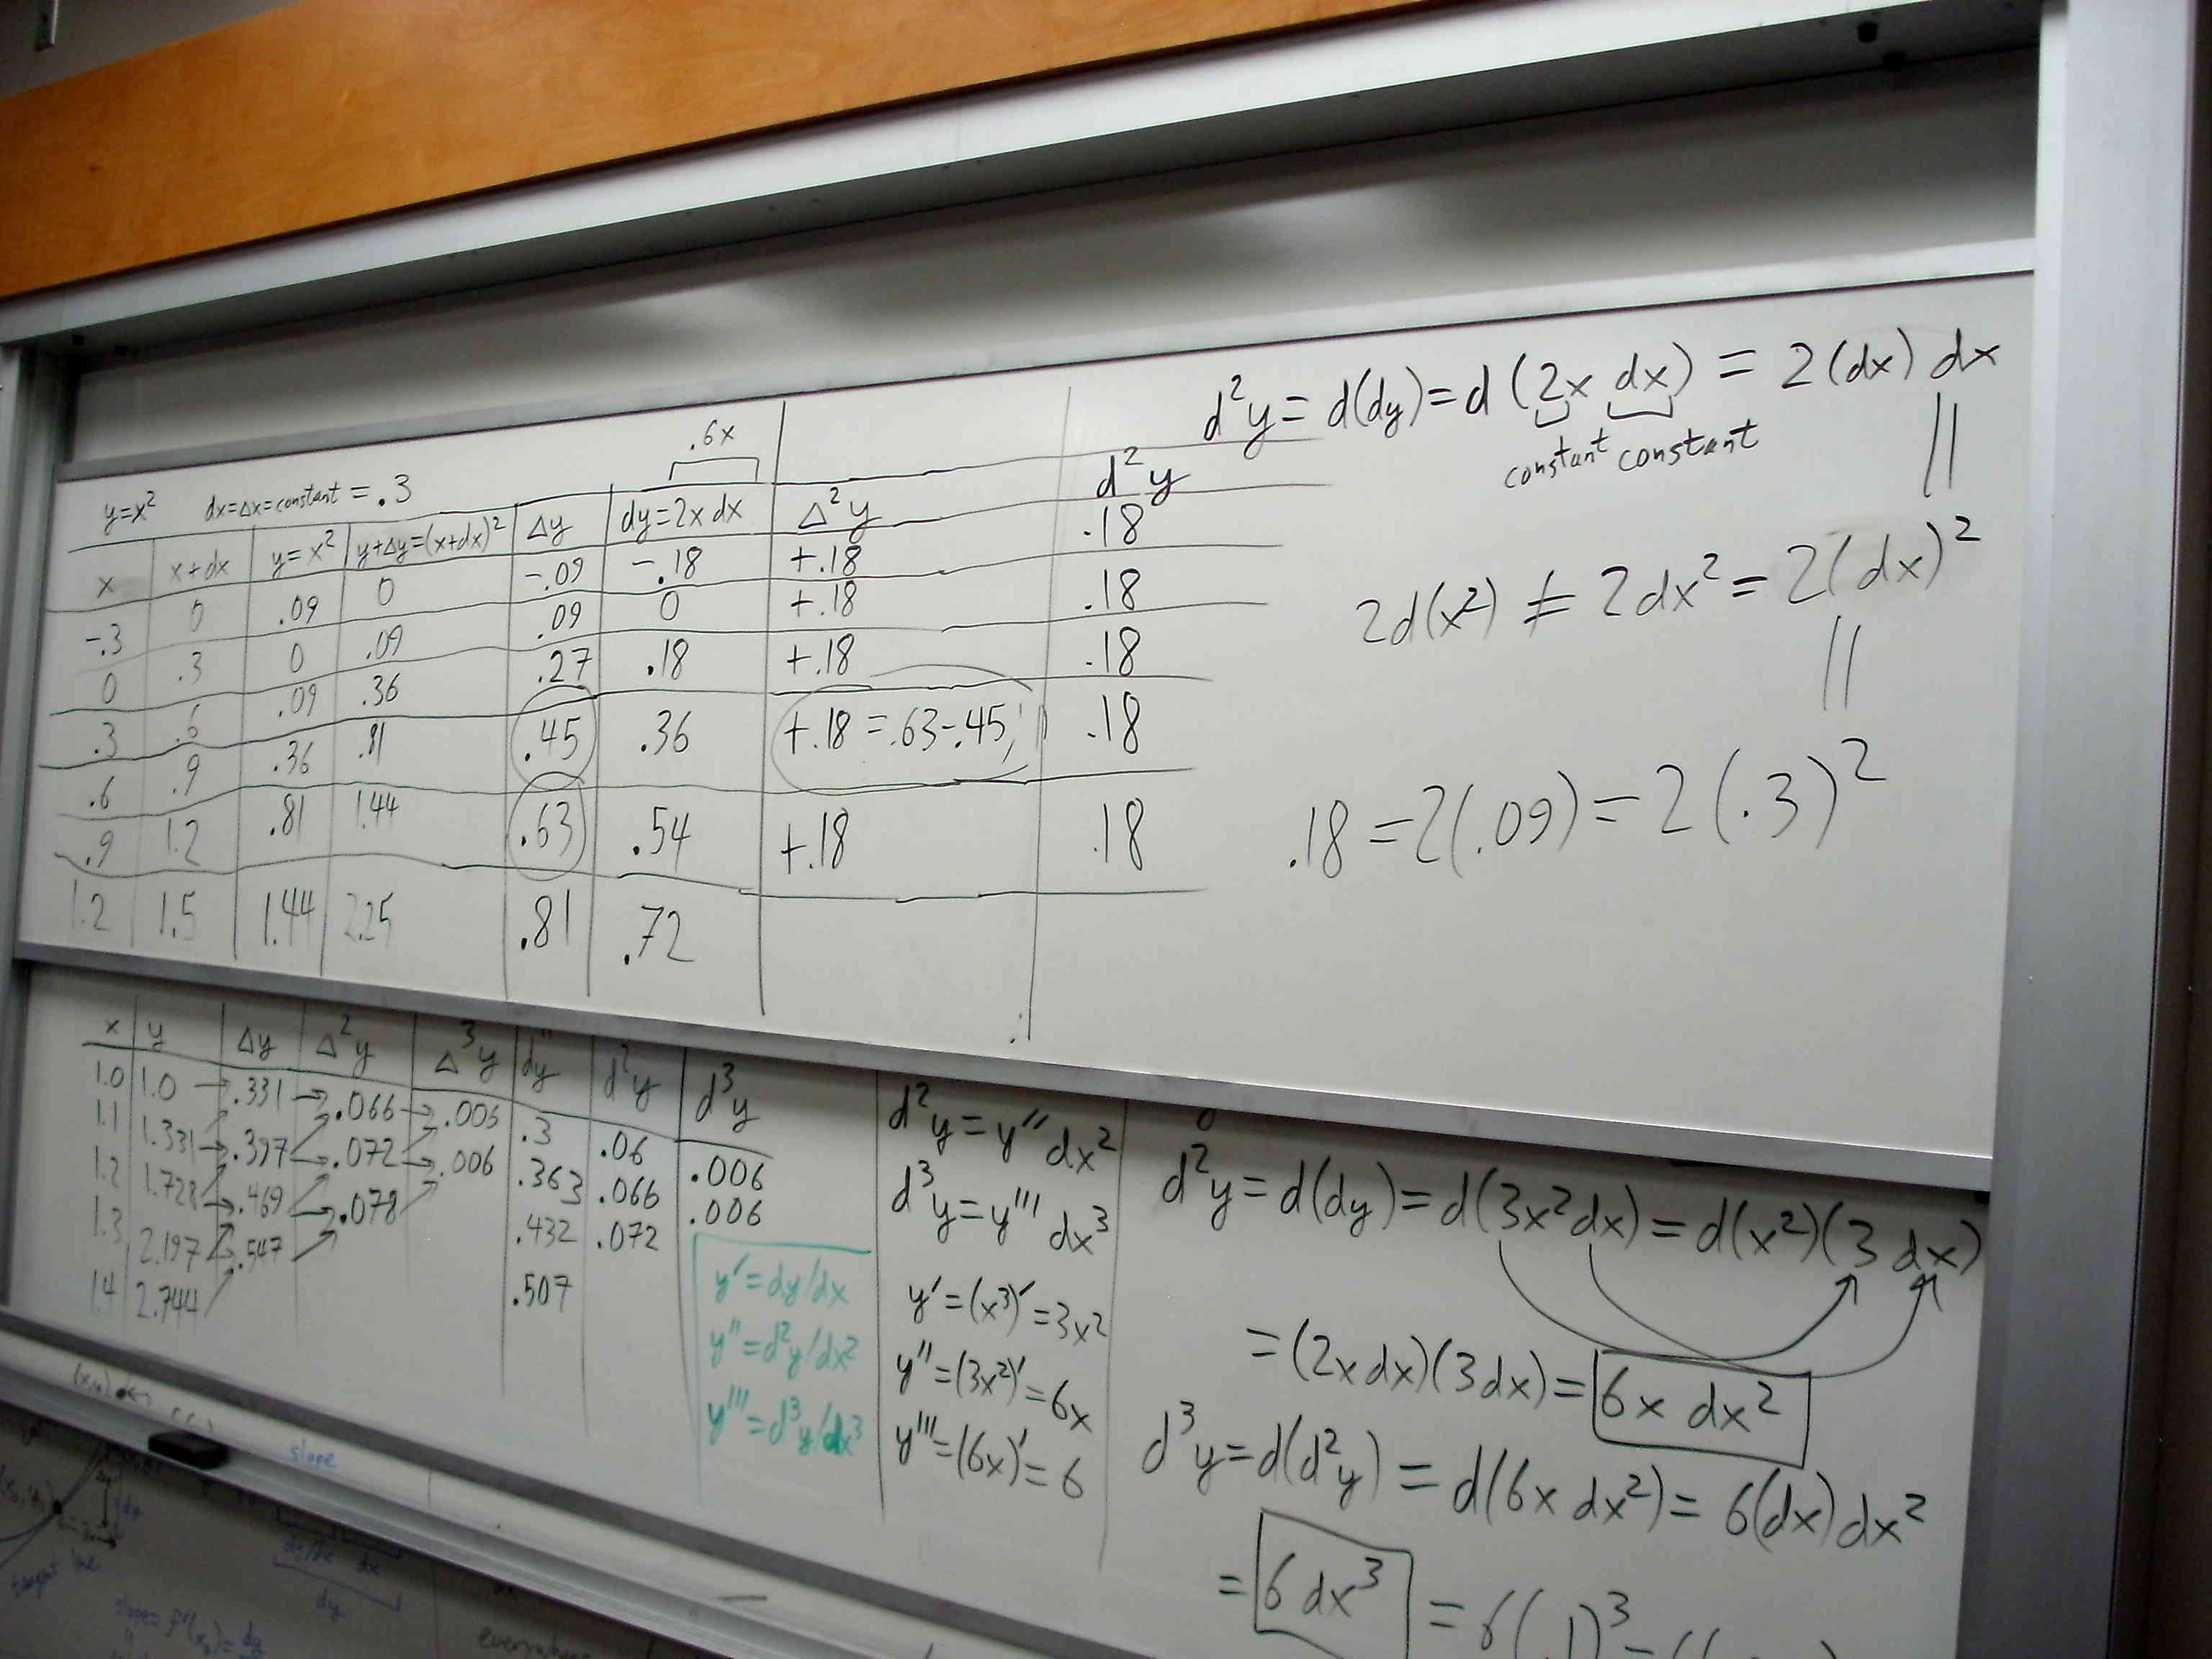 .6x
y=x² dx=Δx=constant=.3
x | x+dx | y=x² | y+Δy=(x+dx)² | Δy | dy=2x dx | Δ²y | d²y
-.3 | 0 | .09 | 0 | -.09 | -.18 | +.18 | .18
0 | .3 | 0 | .09 | .09 | 0 | +.18 | .18
.3 | .6 | .09 | .36 | .27 | .18 | +.18 | .18
.6 | .9 | .36 | .81 | .45 | .36 | +.18=.63-.45 | .18
.9 | 1.2 | .81 | 1.44 | .63 | .54 | +.18 | .18
1.2 | 1.5 | 1.44 | 2.25 | .81 | .72
d²y = d(dy) = d(2x dx) = 2(dx) dx
constant constant
||
2d(x²) ≠ 2dx² = 2(dx)²
||
.18 = 2(.09) = 2(.3)²
x | y | Δy | Δ²y | Δ³y | dy | d²y | d³y
1.0 | 1.0 → .331 → .066 → .006 | .3 | .06 | .006
1.1 | 1.331 → .397 → .072 → .006 | .363 | .066 | .006
1.2 | 1.728 → .469 → .078 | .432 | .072
1.3 | 2.197 → .547 | .507
1.4 | 2.744
y'=dy/dx
y''=d²y/dx²
y'''=d³y/dx³
d²y=y'' dx²
d³y=y''' dx³
y'=(x³)'=3x²
y''=(3x²)'=6x
y'''=(6x)'=6
d²y = d(dy) = d(3x²dx) = d(x²)(3 dx)
= (2x dx)(3dx) = 6x dx²
d³y = d(d²y) = d(6x dx²) = 6(dx) dx²
= 6 dx³ = 6(.1)³
slope
dy/dx dx
dy
tangent line
slope = f'(x₀) = dy